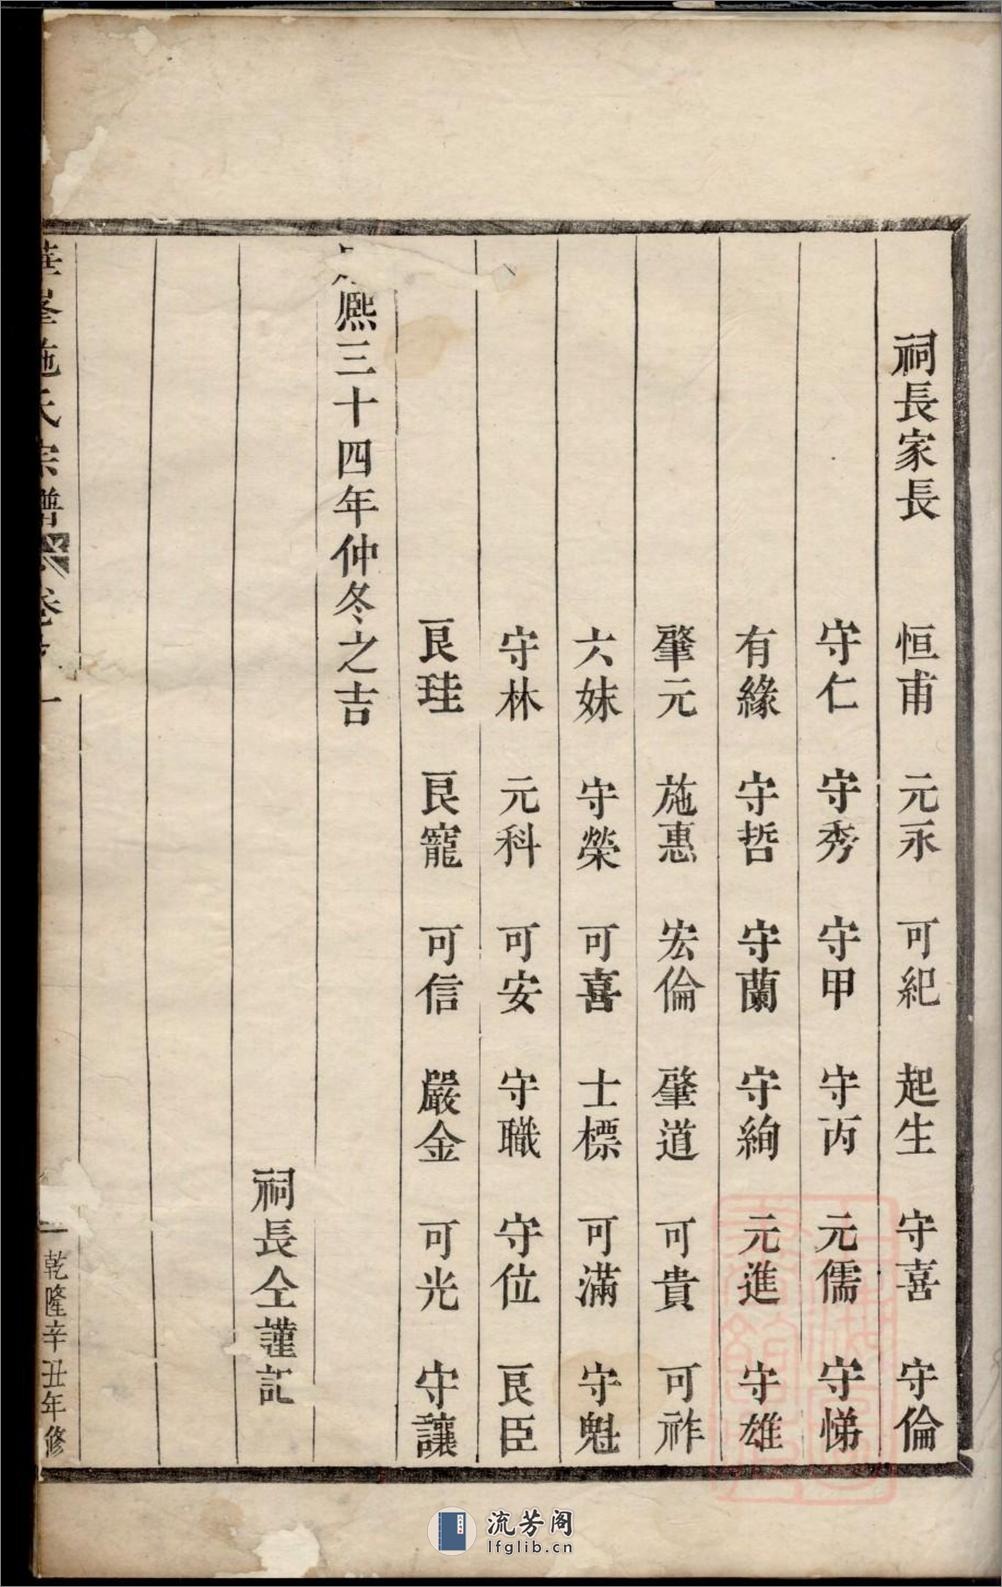 祠長家長　恒甫　元永　可紀　起生　守喜　守倫
守仁　守秀　守甲　守丙　元儒　守悌
有緣　守哲　守蘭　守絢　元進　守雄
肇元　施惠　宏倫　肇道　可貴　可祚
六妹　守榮　可喜　士標　可滿　守魁
守林　元科　可安　守職　守位　良臣
良珪　良寵　可信　嚴金　可光　守讓
熙三十四年仲冬之吉
祠長仝謹記
華峯施氏宗譜　卷　一　乾隆辛丑年修
流芳阁
lfglib.cn